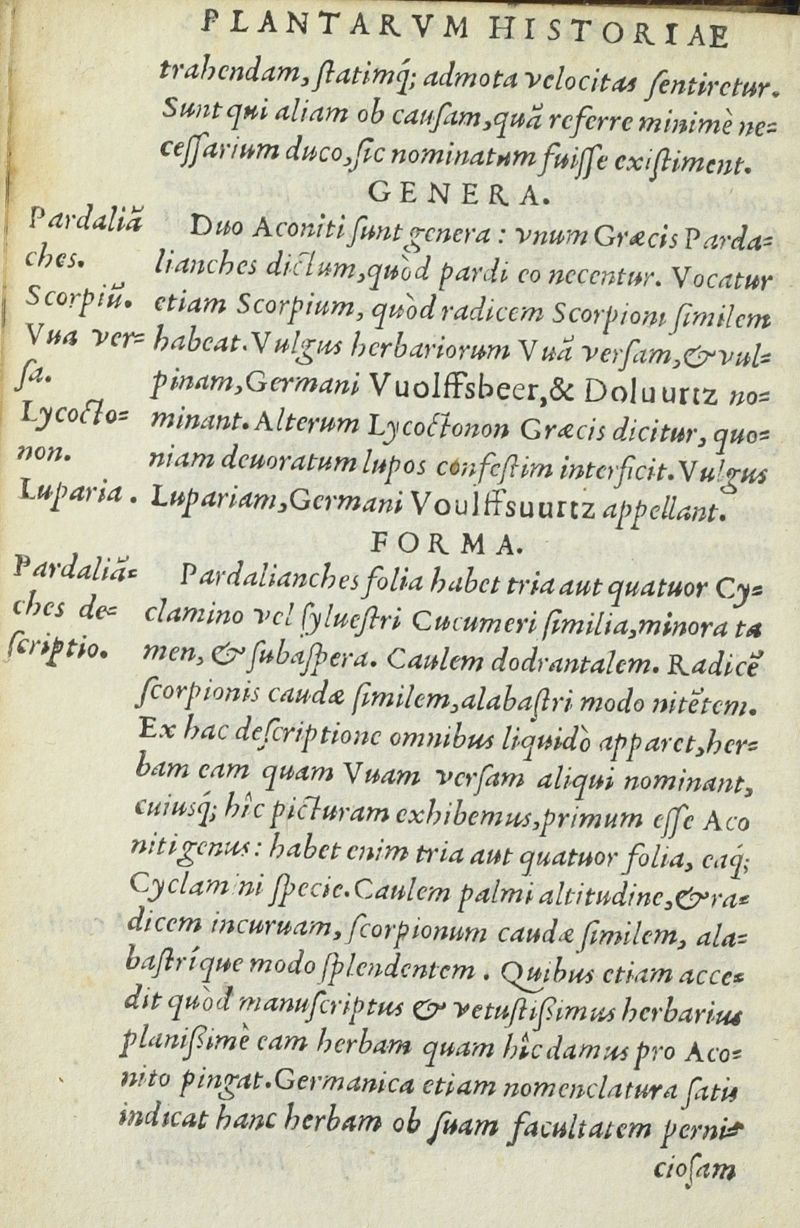 PLANTARVM HISTORIAE
trahendam, ſtatimq́; admota velocitas ſentiretur.
Sunt qui aliam ob cauſam, quã referre minimè ne=
ceſſarium duco, ſic nominatum fuiſſe exiſtiment.
GENERA.
Pardaliã
ches.
Scorpiũ.
Vua ver=
ſa.
Lycocto=
non.
Luparia.
Duo Aconiti ſunt genera: vnum Græcis Parda=
lianches dictum, quòd pardi eo necentur. Vocatur
etiam Scorpium, quòd radicem Scorpioni ſimilem
habeat. Vulgus herbariorum Vuã verſam, & vul=
pinam, Germani Vuolffsbeer, & Doluurtz no=
minant. Alterum Lycoctonon Græcis dicitur, quo=
niam deuoratum lupos confeſtim interficit. Vulgus
Lupariam, Germani Voulffsuurtz appellant.
FORMA.
Pardaliã=
ches de=
ſcriptio.
Pardalianches folia habet tria aut quatuor Cy=
clamino vel ſylueſtri Cucumeri ſimilia, minora ta
men, & ſubaſpera. Caulem dodrantalem. Radicẽ
ſcorpionis caudæ ſimilem, alabaſtri modo nitẽtem.
Ex hac deſcriptione omnibus liquidò apparet, her=
bam eam quam Vuam verſam aliqui nominant,
cuiusq́; hîc picturam exhibemus, primum eſſe Aco
niti genus: habet enim tria aut quatuor folia, eaq́;
Cyclamini ſpecie. Caulem palmi altitudine, & ra=
dicem incuruam, ſcorpionum caudæ ſimilem, ala=
baſtríque modo ſplendentem. Quibus etiam acce=
dit quòd manuſcriptus & vetuſtißimus herbarius
planißimè eam herbam quam hîc damus pro Aco=
nito pingat. Germanica etiam nomenclatura ſatis
indicat hanc herbam ob ſuam facultatem perni=
cioſam